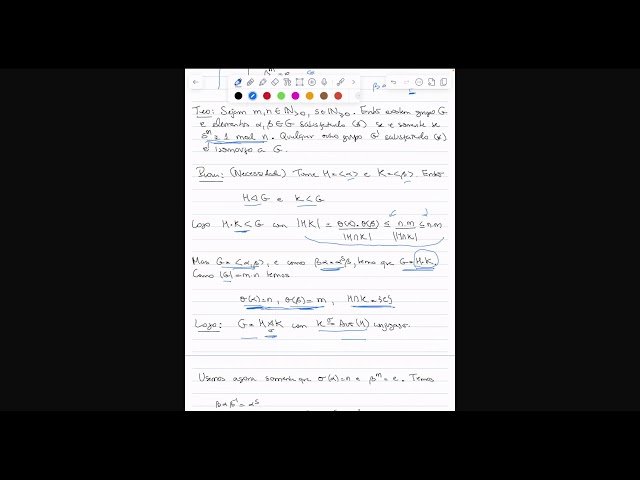 Teo: Sejam m,n ∈ ℕ>0, s ∈ ℕ>0. Então existem grupo G
e elementos α, β ∈ G satisfazendo (*) se e somente se
s^m ≡ 1 mod n. Qualquer outro grupo G' satisfazendo (*)
é isomorfo a G.
Prova: (Necessidade) Tome H=<α> e K=<β>. Então
H◁G e K<G
Logo H·K<G com |HK| = σ(α)·σ(β)/|H∩K| ≤ n.m/|H∩K| ≤ n.m
Mas G=<α,β>, e como βα=α^sβ, temos que G=H·K.
Como |G|=m·n temos
σ(α)=n, σ(β)=m, H∩K={e}
Logo: G = H⋊K com K →σ Aut(H) conjugação.
Usemos agora somente que σ(α)=n e β^m=e. Temos
βαβ^-1=α^s